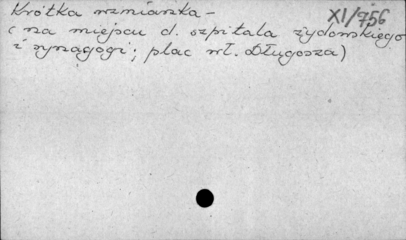 Krótka wzmianka -
XI/756
( na miejscu d. szpitala żydowskiego
i synagogi; plac wł. Długosza)